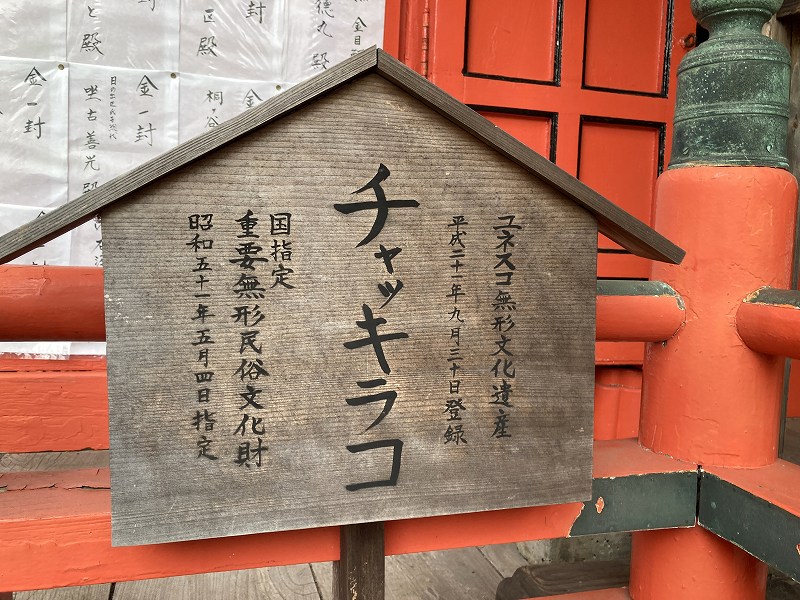 ユネスコ無形文化遺産
平成二十一年九月三十日登録
チャッキラコ
国指定
重要無形民俗文化財
昭和五十一年五月四日指定
金一封
殿
封
殿
徳丸殿
金一封
金一封
善光殿
桐ヶ谷